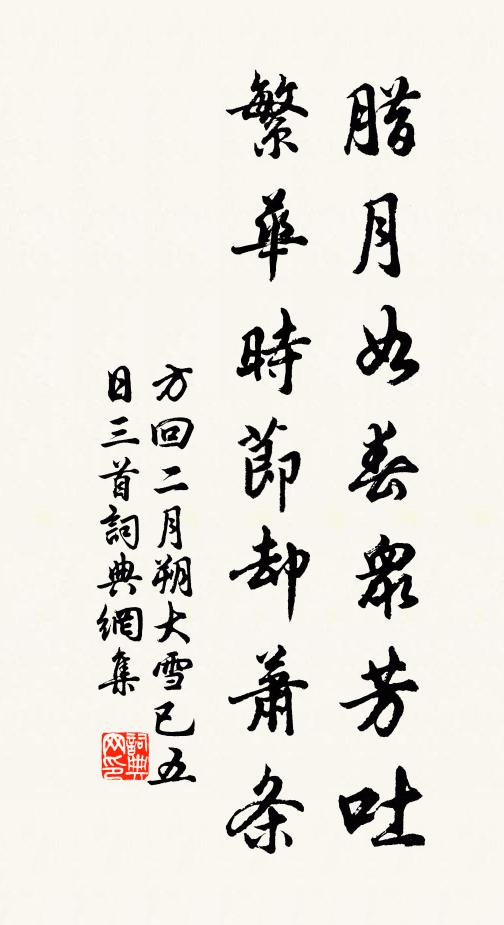 腊月如春众芳吐
繁華時節却蕭条
方回二月朔大雪已五
日三首詞典網集
詞典网印